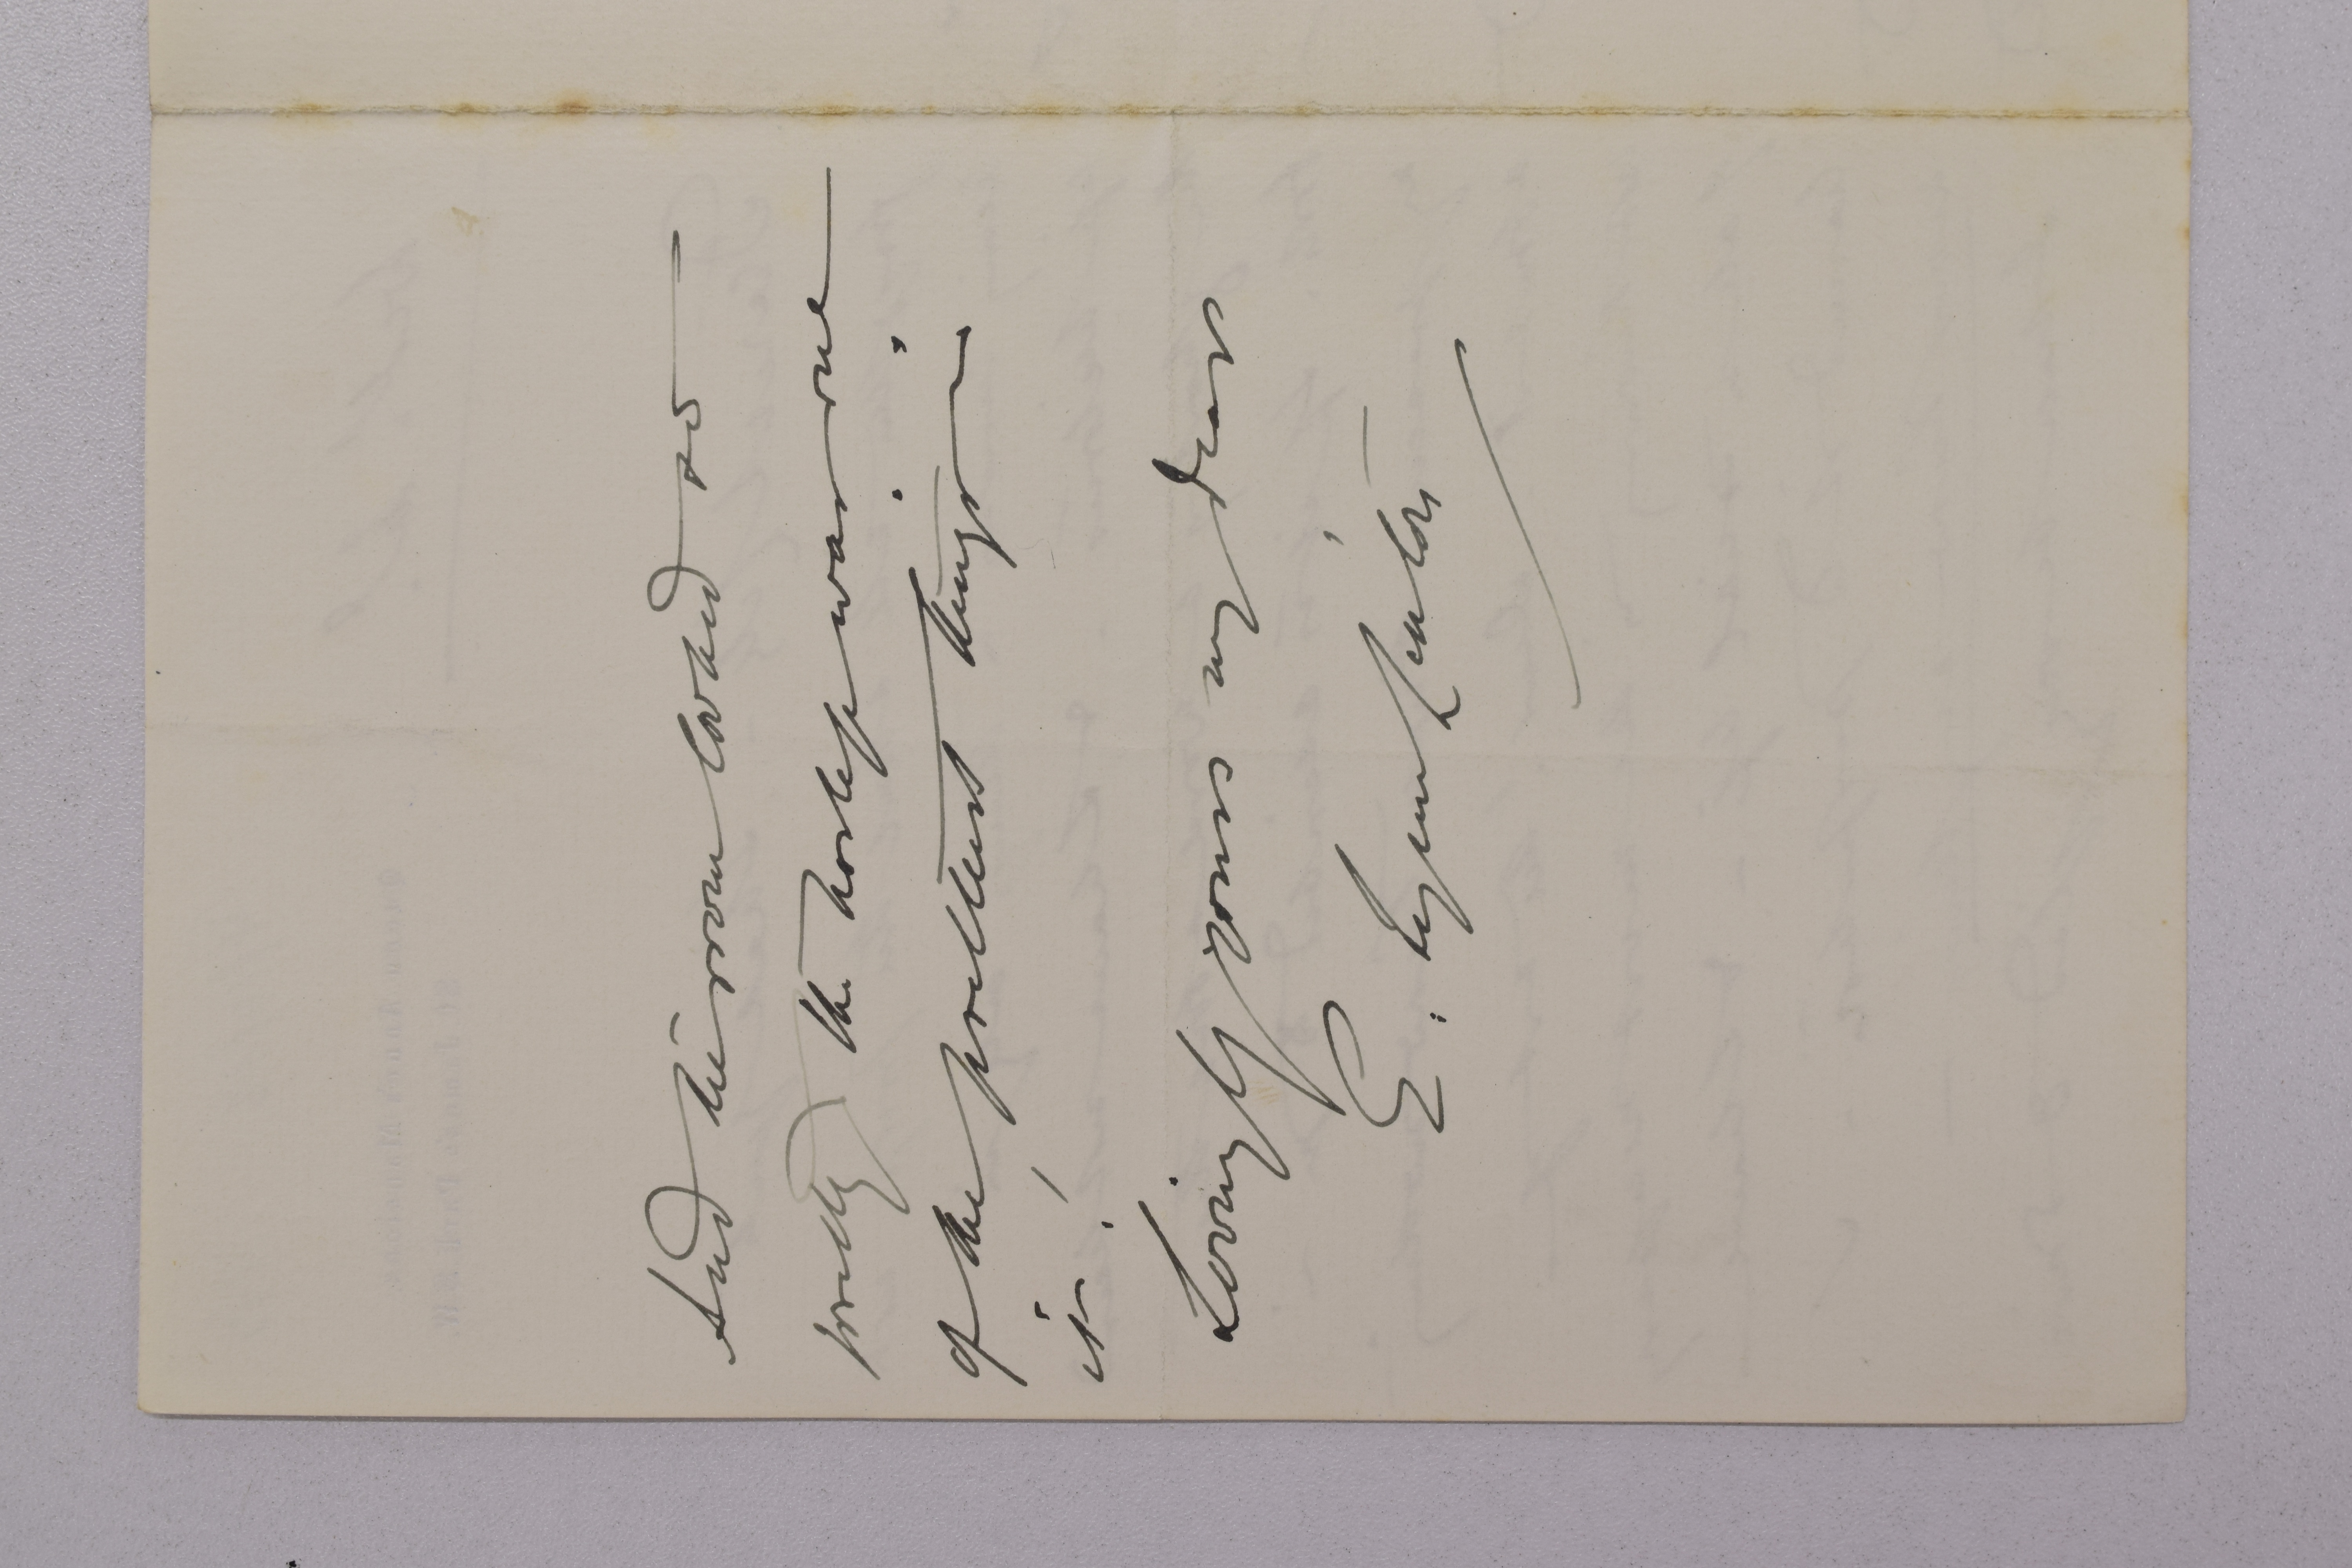 And the room looked so
pretty the hostess was one
of the prettiest things in
it!
Lovingly yours my dear
E. Lynn Linton